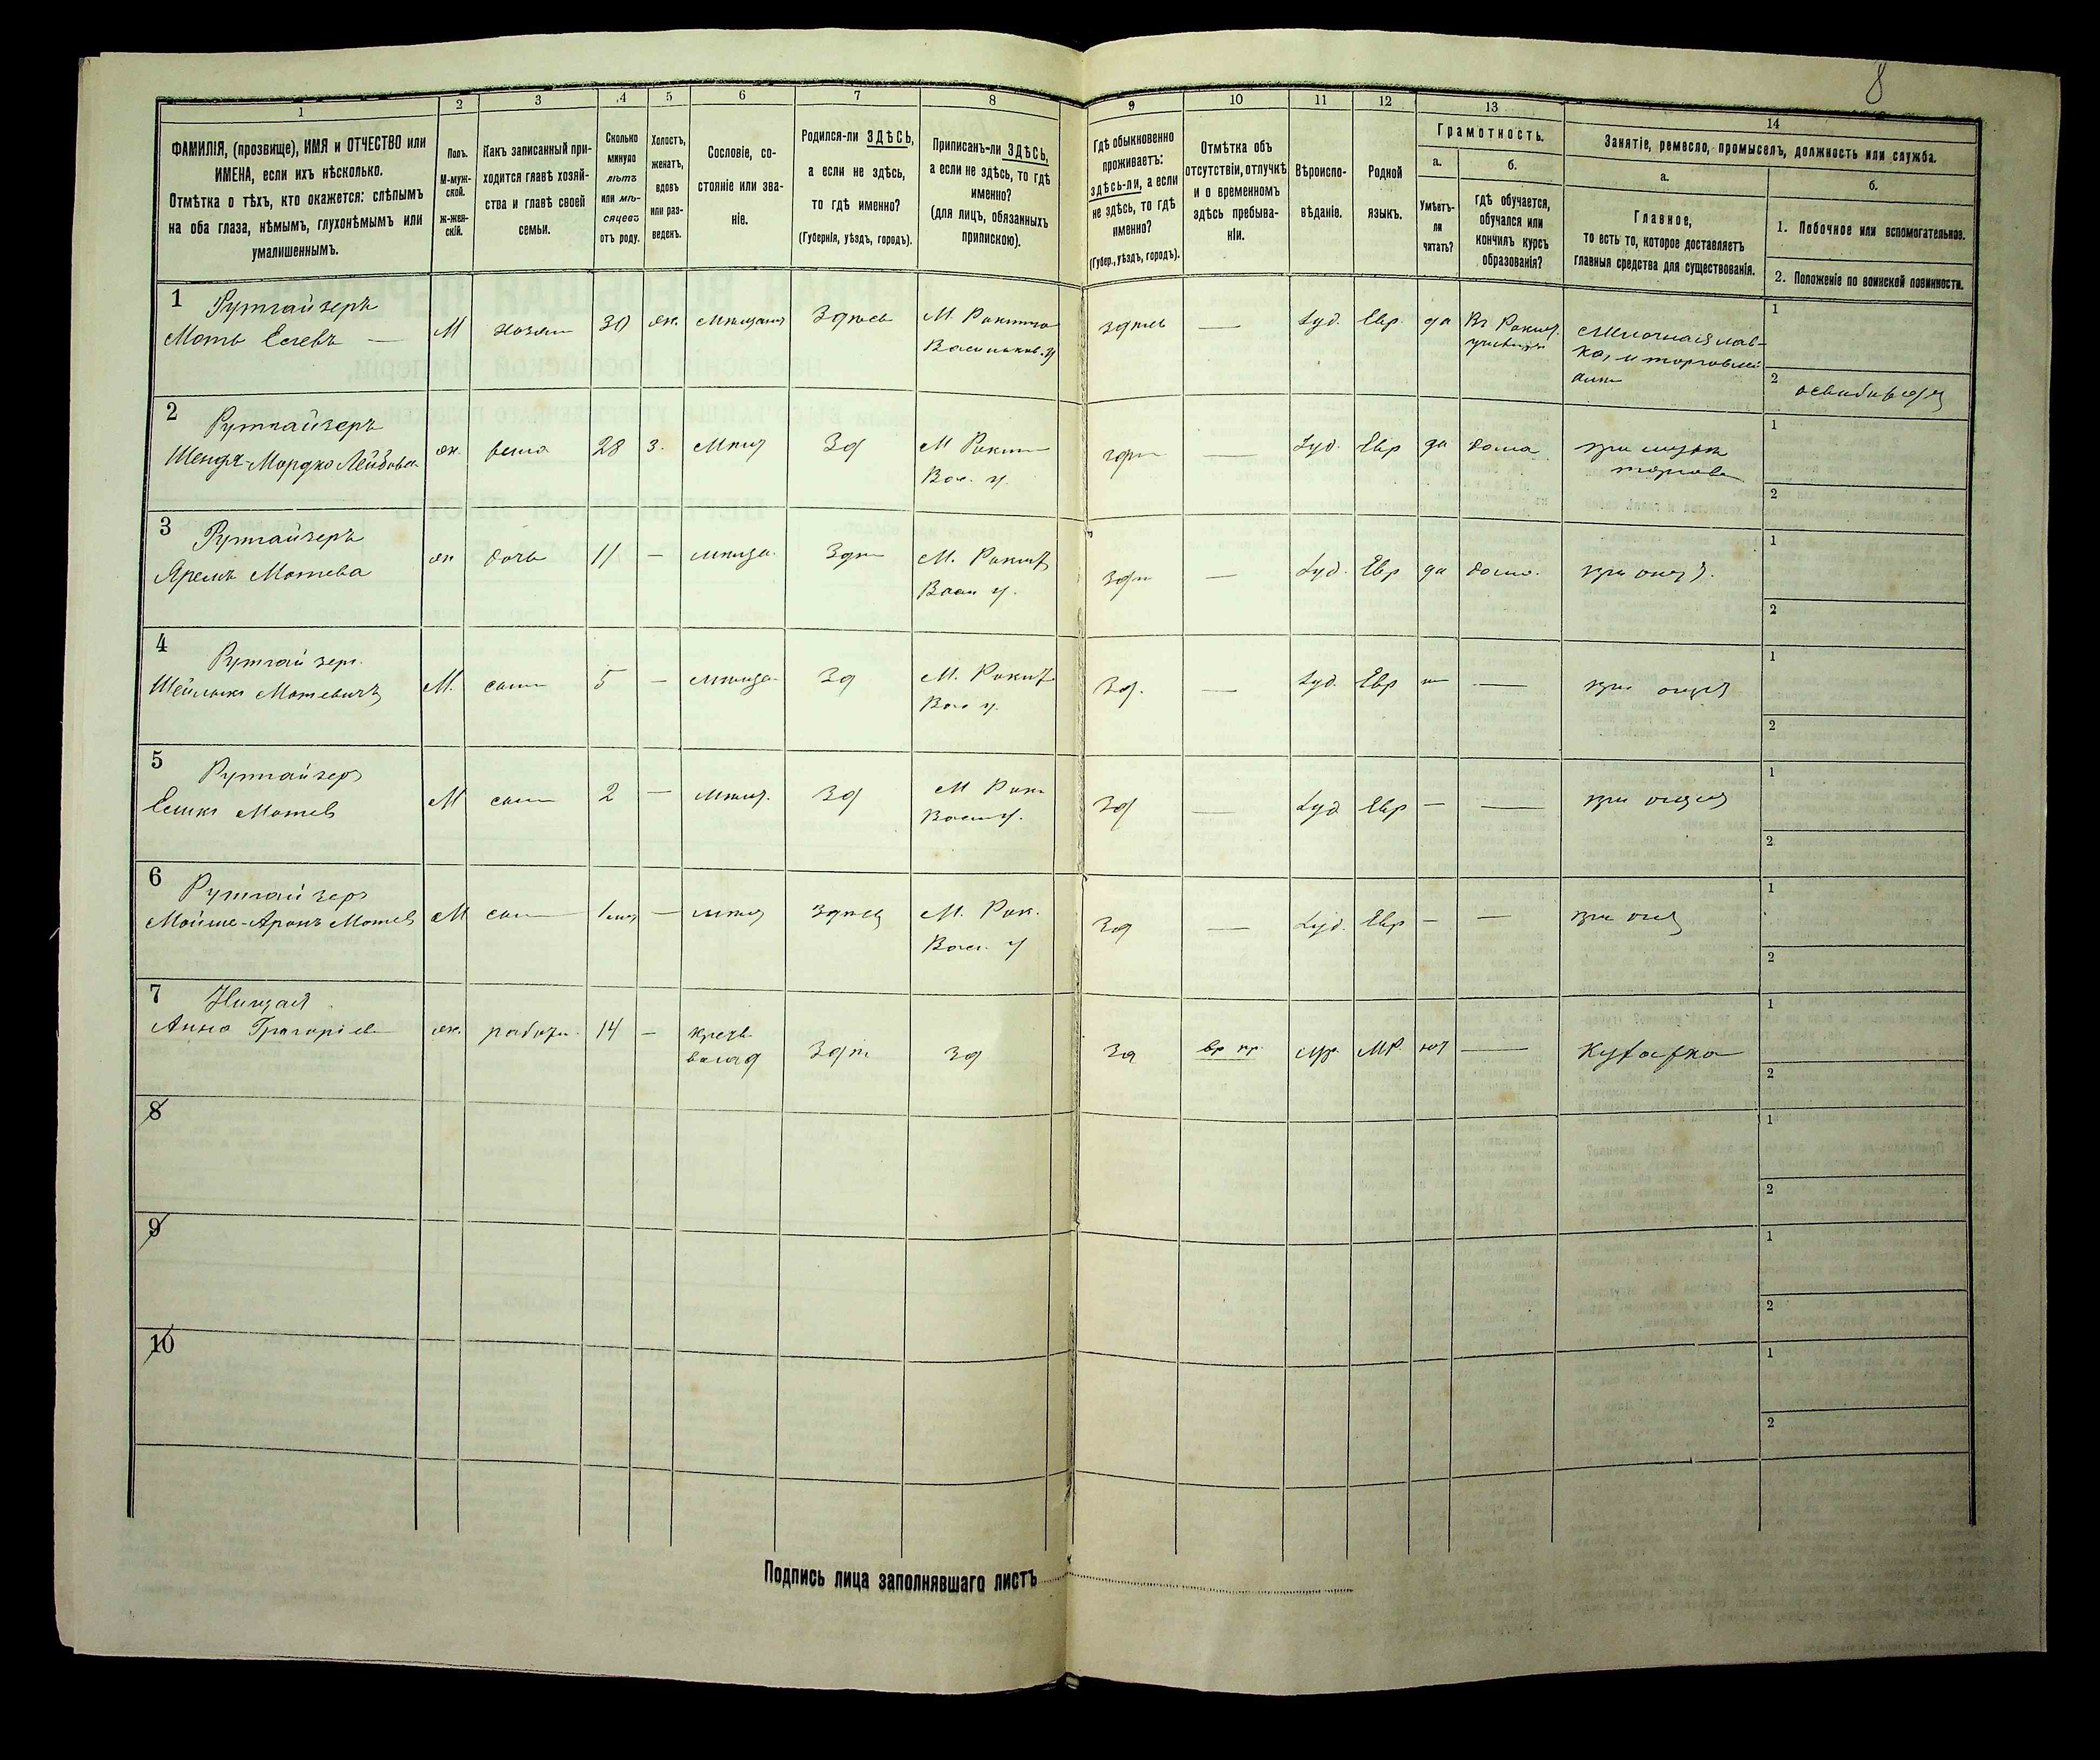 8
1
2
3
4
5
6
7
8
9
10
11
12
13
14
ФАМИЛІЯ, (прозвище), ИМЯ и ОТЧЕСТВО или
ИМЕНА, если ихъ нѣсколько.
Отмѣтка о тѣхъ, кто окажется: слѣпымъ
на оба глаза, нѣмымъ, глухонѣмымъ или
умалишеннымъ.
Полъ.
М-муж-
ской.
Ж-жен-
скій.
Какъ записанный при-
ходится главѣ хозяй-
ства и главѣ своей
семьи.
Сколько
минуло
лѣтъ
или мѣ-
сяцевъ
отъ роду.
Холостъ,
женатъ,
вдовъ
или раз-
веденъ.
Сословіе, со-
стояніе или зва-
ніе.
Родился-ли ЗДѢСЬ,
а если не здѣсь,
то гдѣ именно?
(Губернія, уѣздъ, городъ).
Приписанъ-ли ЗДѢСЬ,
а если не здѣсь, то гдѣ
именно?
(для лицъ, обязанныхъ
припискою).
Гдѣ обыкновенно
проживаетъ:
здѣсь-ли, а если
не здѣсь, то гдѣ
именно?
(Губер., уѣздъ, городъ).
Отмѣтка объ
отсутствіи, отлучкѣ
и о временномъ
здѣсь пребыва-
ніи.
Вѣроиспо-
вѣданіе.
Родной
языкъ.
Грамотность.
а.
Умѣетъ-
ли
читать?
б.
гдѣ обучается,
обучался или
кончилъ курсъ
образованія?
Занятіе, ремесло, промыселъ, должность или служба.
а.
Главное,
то есть то, которое доставляетъ
главныя средства для существованія.
б.
1. Побочное или вспомогательное.
2. Положеніе по воинской повинности.
1 Рутгайзеръ
Моть Еселевъ — М хозяин 30 ж. мѣщанин Здѣсь М. Ракитно
Васильков. у здѣсь — Іуд. Евр. да Въ Ракит.
училищѣ мелочная лав-
ка, и торговлей
1
2
2 Рутгайзеръ
Шендя-Мордко Лейбова ж. жена 28 з. мѣщ Зд М Ракит
Вас. у. здѣ — Іуд. Евр да дома при мужѣ
торгов
1
2
3 Рутгайзеръ
Мотева ж дочь 11 — мѣща. Здѣ М. Ракит
Васи у. здѣ — Іуд. Евр да дома. при отцѣ.
1
2
4 Рутгайзер.
Мотевичъ М. сын 5 — мѣща Зд М. Ракит
Вас у. Зд. — Іуд. Евр — при отцѣ
1
2
5 Рутгайзер
Мотев М сын 2 — мѣщ. Зд М Раки
Васи у. Зд — Іуд Евр — — при отцѣ
1
2
6 Рутгайзер
Мойше-Аронъ Мотев М сын 1 — мѣщ Здѣсь М. Рак.
Васи. у Зд — Іуд. Евр — — при отцѣ
1
2
7
Анна Григоріев ж. работн. 14 — крест
Здѣ зд Зд вр пр. МР. нѣт — Кухарка
1
2
8
1
2
9
1
2
10
1
2
Подпись лица заполнявшаго листъ